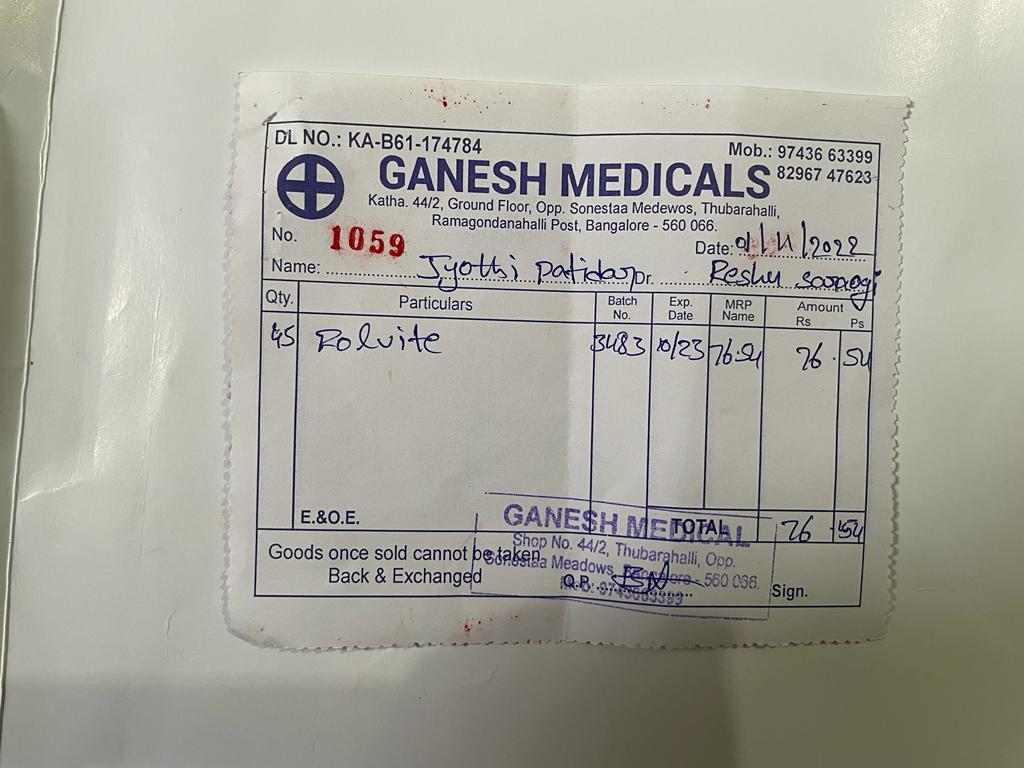 DL NO.: KA-B61-174784
Mob.: 97436 63399
82967 47623
GANESH MEDICALS
Katha. 44/2, Ground Floor, Opp. Sonestaa Medewos, Thubarahalli,
Ramagondanahalli Post, Bangalore - 560 066.
No. 1059 Date: 01/11/2022
Name: Jyothi Patidar Dr. Reshu
Qty. Particulars Batch No. Exp. Date MRP Name Amount Rs Ps
45 Folvite 3483 10/23 76.54 76.54
E.&O.E. TOTAL 76.54
Goods once sold cannot be taken
Back & Exchanged
Q.P. Sign.
GANESH MEDICAL
Shop No. 44/2, Thubarahalli, Opp.
Sonestaa Meadows, Bangalore - 560 066.
Mob: 9743663399